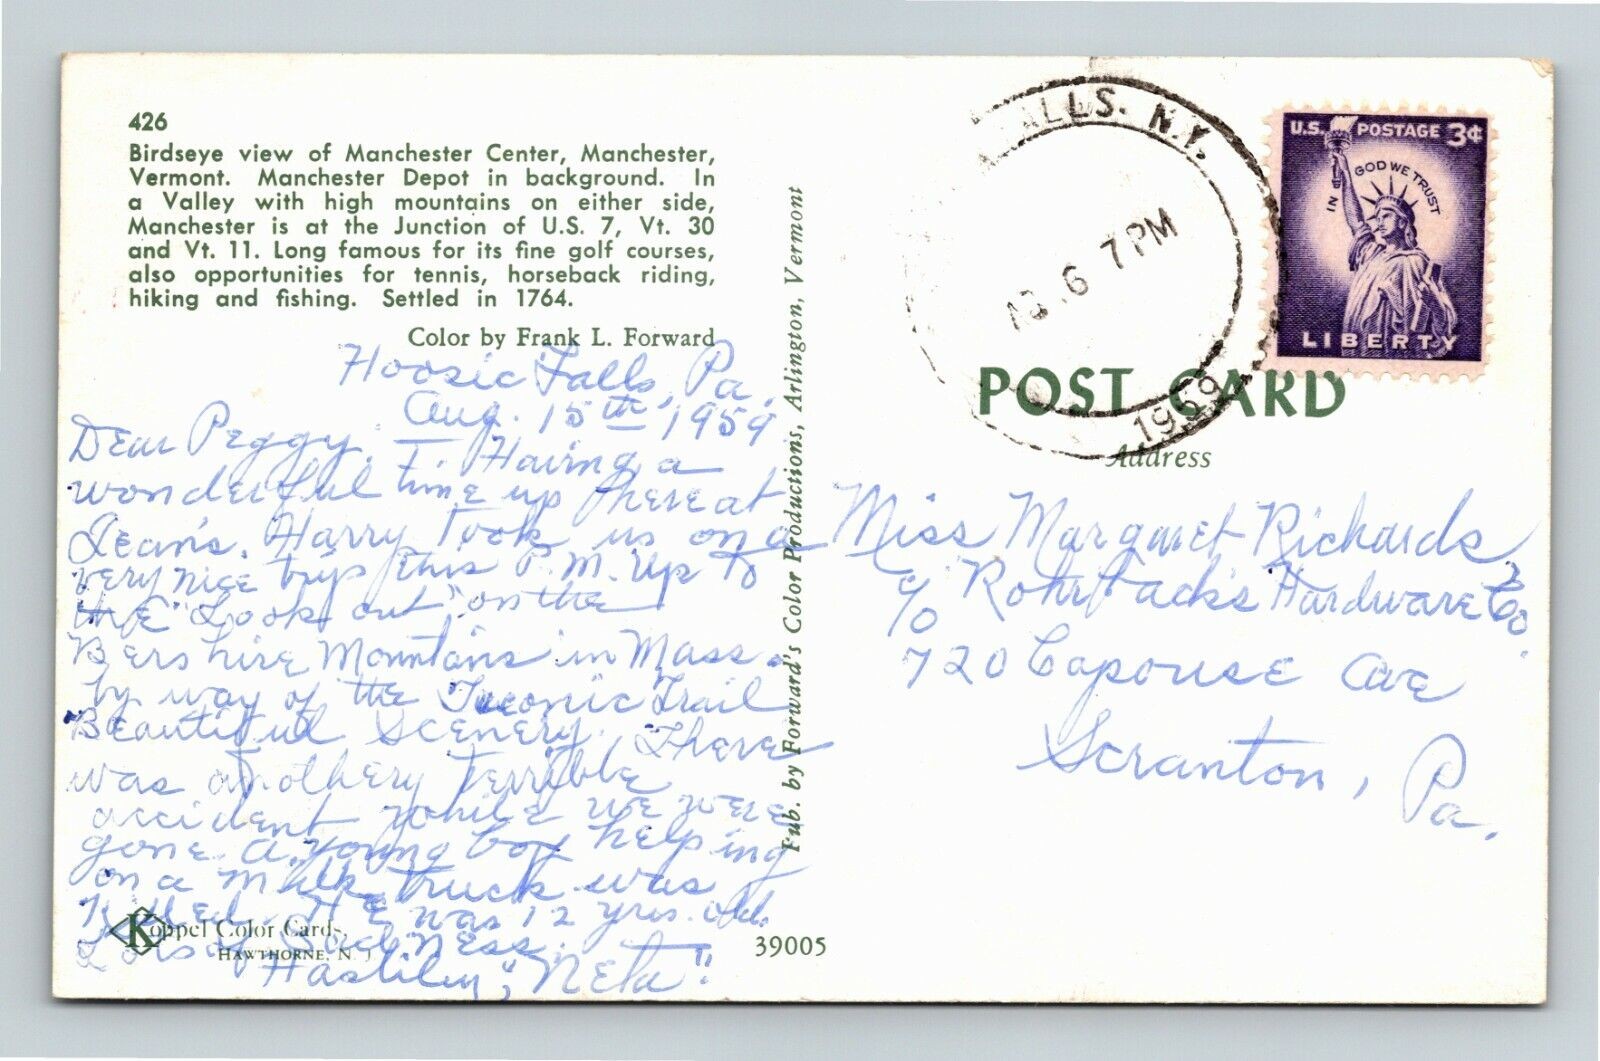 426
Birdseye view of Manchester Center, Manchester,
Vermont. Manchester Depot in background. In
a Valley with high mountains on either side,
Manchester is at the Junction of U.S. 7, Vt. 30
and Vt. 11. Long famous for its fine golf courses,
also opportunities for tennis, horseback riding,
hiking and fishing. Settled in 1764.
Color by Frank L. Forward
Hoosic Falls, Pa.
Aug. 15th, 1959
Dear Peggy,
Having a
wonderful time up here at
Jean's. Harry took us on a
very nice trip this P.M. up to
the "Look out" on the
Bershire Mountains in Mass.
by way of the Taconic Trail
Beautiful Scenery. There
was another terrible
accident while we were
gone. a young boy helping
on a milk truck was
Killed. He was 12 yrs. old.
Lots of Sadness.
Hastiley, "Neta".
Koppel Color Cards,
HAWTHORNE, N. J.
39005
Pub. by Forward's Color Productions, Arlington, Vermont
ALLS. N.Y.
6 7 PM
1959
U.S. POSTAGE 3¢
IN GOD WE TRUST
LIBERTY
POST CARD
Address
Miss Margaret Richards
c/o Rohrbach's Hardware Co.
720 Capouse Ave
Scranton, Pa.